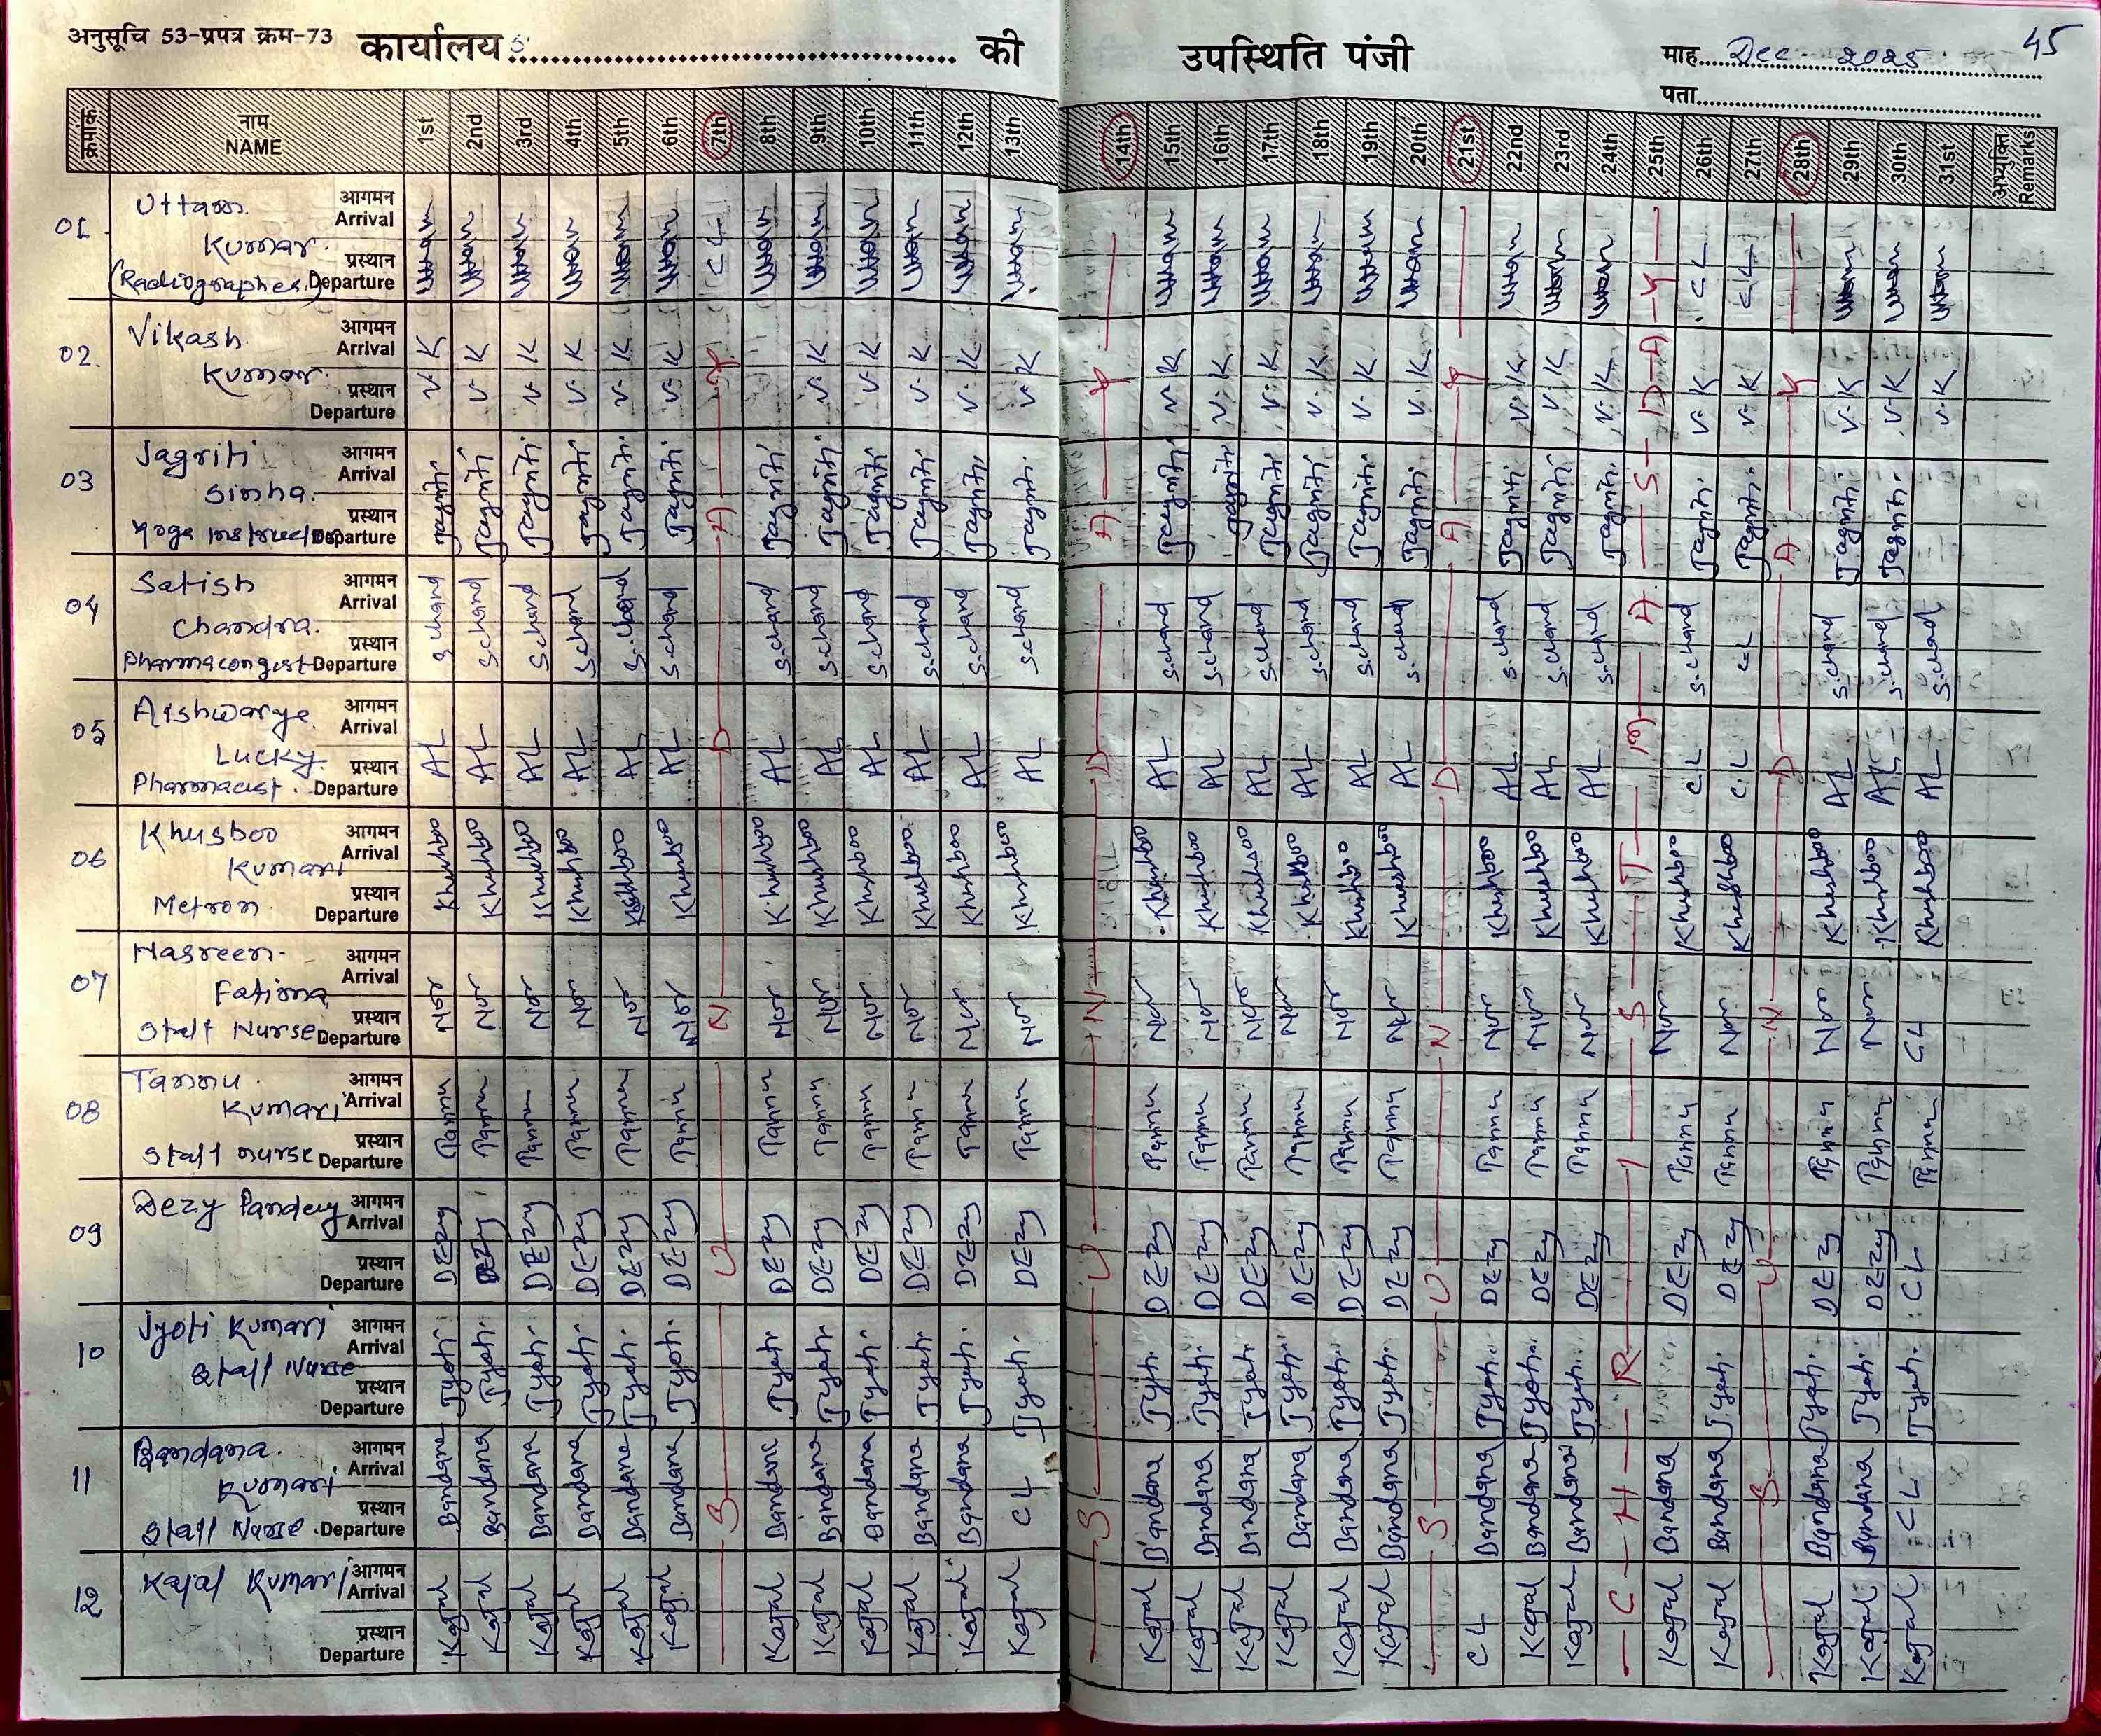 अनुसूचि 53-प्रपत्र क्रम-73 कार्यालय.......................................... की उपस्थिति पंजी माह....Dec - 2025 45
पता
क्रमांक नाम NAME 1st 2nd 3rd 4th 5th 6th 7th 8th 9th 10th 11th 12th 13th 14th 15th 16th 17th 18th 19th 20th 21st 22nd 23rd 24th 25th 26th 27th 28th 29th 30th 31st अभ्युक्ति Remarks
01 Uttam Kumar (Radiographer) आगमन Arrival प्रस्थान Departure Uttam Uttam Uttam Uttam Uttam Uttam CL Uttam Uttam Uttam Uttam Uttam Uttam Uttam Uttam Uttam Uttam Uttam Uttam Uttam Uttam Uttam CL CL Uttam Uttam Uttam
02 Vikash Kumar आगमन Arrival प्रस्थान Departure V.K V.K V.K V.K V.K V.K V.K V.K V.K V.K V.K V.K V.K V.K V.K V.K V.K V.K V.K V.K V.K V.K V.K V.K V.K
03 Jagriti Sinha. Yoga Instructor आगमन Arrival प्रस्थान Departure Jagriti Jagriti Jagriti Jagriti Jagriti Jagriti Jagriti Jagriti Jagriti Jagriti Jagriti Jagriti Jagriti Jagriti Jagriti Jagriti Jagriti Jagriti Jagriti Jagriti Jagriti Jagriti Jagriti Jagriti Jagriti
04 Satish Chandra. Pharmacongist आगमन Arrival प्रस्थान Departure S.chand S.chand S.chand S.chand S.chand S.chand S.chand S.chand S.chand S.chand S.chand S.chand S.chand S.chand S.chand S.chand S.chand S.chand S.chand S.chand S.chand S.chand CL S.chand S.chand S.chand
05 Aishwarye Lucky Pharmacist. आगमन Arrival प्रस्थान Departure AL AL AL AL AL AL AL AL AL AL AL AL AL AL AL AL AL AL AL AL AL CL C.L AL AL AL
06 Khusboo Kumari Metron आगमन Arrival प्रस्थान Departure Khushboo Khushboo Khushboo Khushboo Khushboo Khushboo Khushboo Khushboo Khushboo Khushboo Khushboo Khushboo Khushboo Khushboo Khushboo Khushboo Khushboo Khushboo Khushboo Khushboo Khushboo Khushboo Khushboo Khushboo Khushboo Khushboo
07 Nasreen Fatima Staff Nurse आगमन Arrival प्रस्थान Departure CL
08 Tannu Kumari Staff nurse आगमन Arrival प्रस्थान Departure Tannu Tannu Tannu Tannu Tannu Tannu Tannu Tannu Tannu Tannu Tannu Tannu Tannu Tannu Tannu Tannu Tannu Tannu Tannu Tannu Tannu Tannu Tannu Tannu Tannu Tannu
09 Dezy Pandey आगमन Arrival प्रस्थान Departure DEzy DEzy DEzy DEzy DEzy DEzy DEzy DEzy DEzy DEzy DEzy DEzy DEzy DEzy DEzy DEzy DEzy DEzy DEzy DEzy DEzy DEzy DEzy DEzy DEzy CL
10 Jyoti Kumari Staff Nurse आगमन Arrival प्रस्थान Departure Jyoti Jyoti Jyoti Jyoti Jyoti Jyoti Jyoti Jyoti Jyoti Jyoti Jyoti Jyoti Jyoti Jyoti Jyoti Jyoti Jyoti Jyoti Jyoti Jyoti Jyoti Jyoti Jyoti Jyoti Jyoti
11 Bandana Kumari Staff Nurse. आगमन Arrival प्रस्थान Departure Bandana Bandana Bandana Bandana Bandana Bandana Bandana Bandana Bandana Bandana Bandana CL Bandana Bandana Bandana Bandana Bandana Bandana Bandana Bandana Bandana Bandana Bandana Bandana Bandana CL
12 Kajal Kumari आगमन Arrival प्रस्थान Departure Kajal Kajal Kajal Kajal Kajal Kajal Kajal Kajal Kajal Kajal Kajal Kajal Kajal Kajal Kajal Kajal Kajal Kajal CL Kajal Kajal Kajal Kajal Kajal Kajal Kajal
SUNDAY
SUNDAY
SUNDAY
CHRISTMAS-DAY
SUNDAY